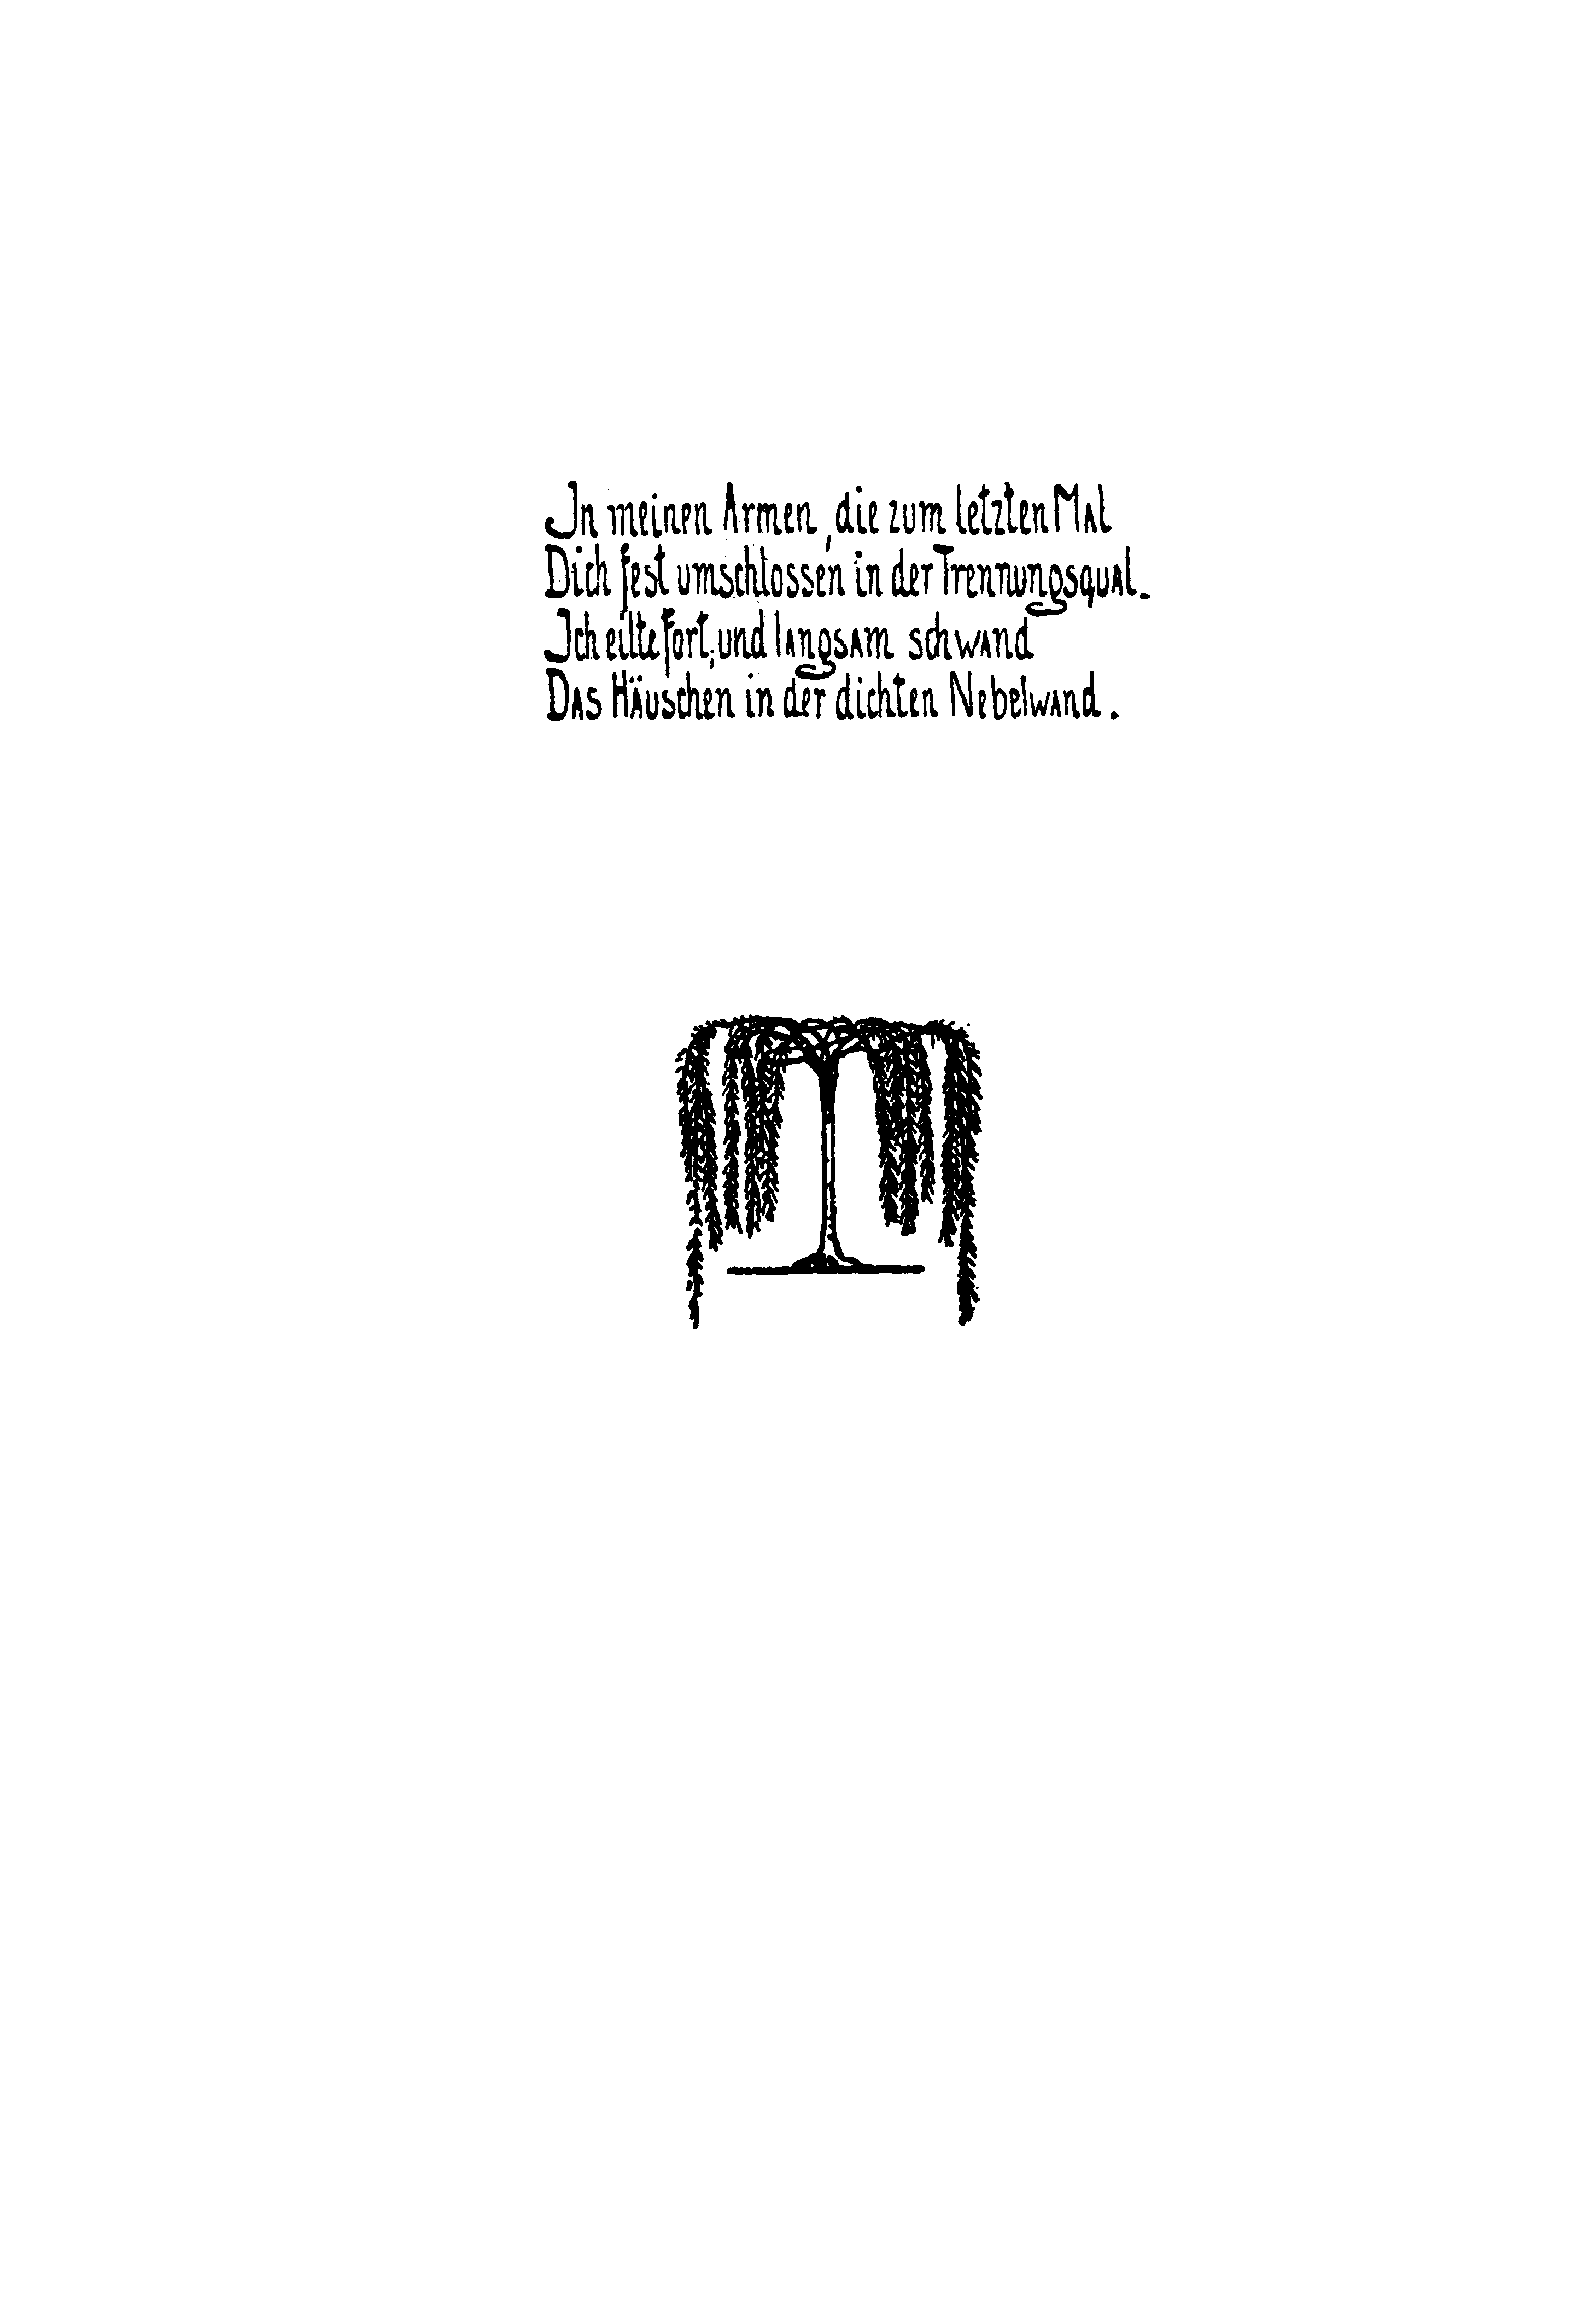 In meinen Armen, die zum letzten Mal
Dich fest umschlossen in der Trennungsqual.
Ich eilte fort, und langsam schwand
Das Häuschen in der dichten Nebelwand.